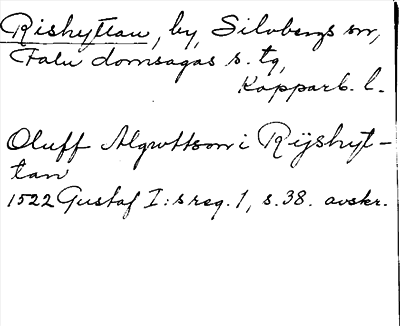 Rishyttan, by, Silvbergs sn,
Falu domsagas s. tg,
Kopparb. l.
Oluff Algwttson i Rijshyt-
tan
1522 Gustaf I:s reg. 1, s. 38. avskr.